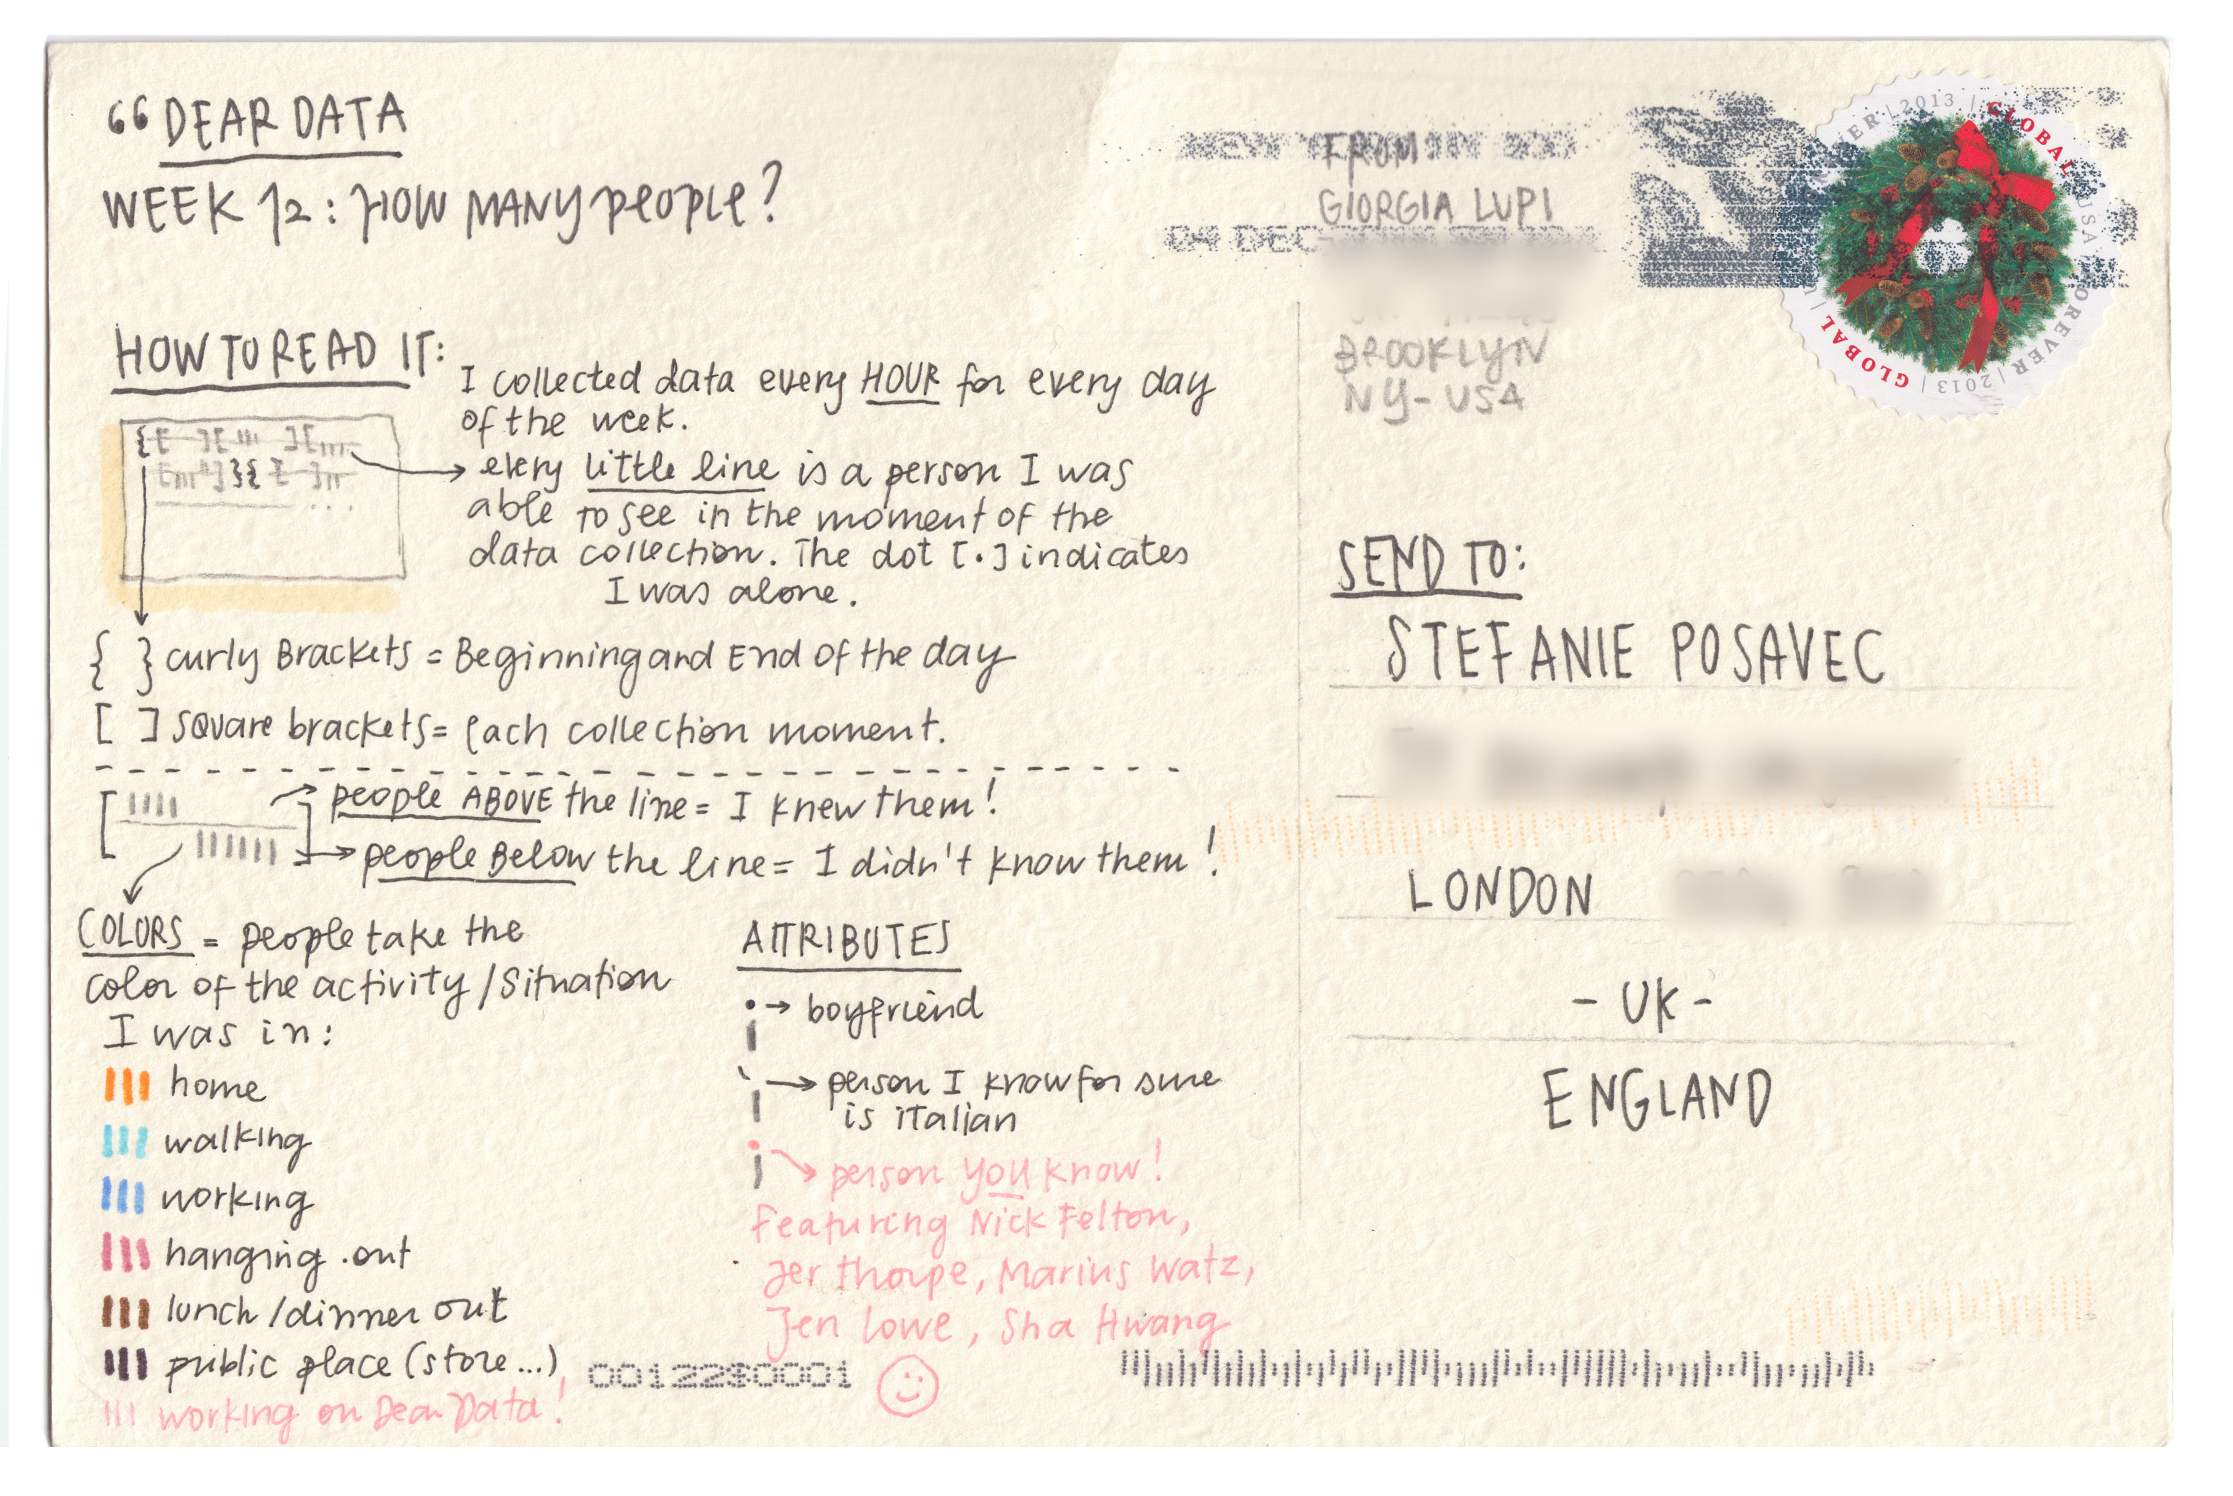 “DEAR DATA
WEEK 12: HOW MANY people?
HOW TO READ IT:
I collected data every HOUR for every day
of the week.
every little line is a person I was
able to see in the moment of the
data collection. The dot [·] indicates
I was alone.
{ } curly Brackets = Beginning and End of the day
[ ] square brackets = Each collection moment.
people ABOVE the line = I knew them!
people Below the line = I didn't know them!
COLORS = people take the
color of the activity / Situation
I was in:
home
walking
working
hanging out
lunch / dinner out
public place (store...)
working on Dear Data!
ATTRIBUTES
boyfriend
person I know for sure
is italian
person you know!
Featuring Nick Felton,
Jer thorpe, Marius Watz,
Jen Lowe, Sha Hwang
0012280001
NEW YORK NY 100
04 DEC
FROM:
GIORGIA LUPI
BROOKLYN
NY-USA
GLOBAL | USA FOREVER | 2013 | GLOBAL | USA FOREVER | 2013 |
SEND TO:
STEFANIE POSAVEC
LONDON
- UK -
ENGLAND